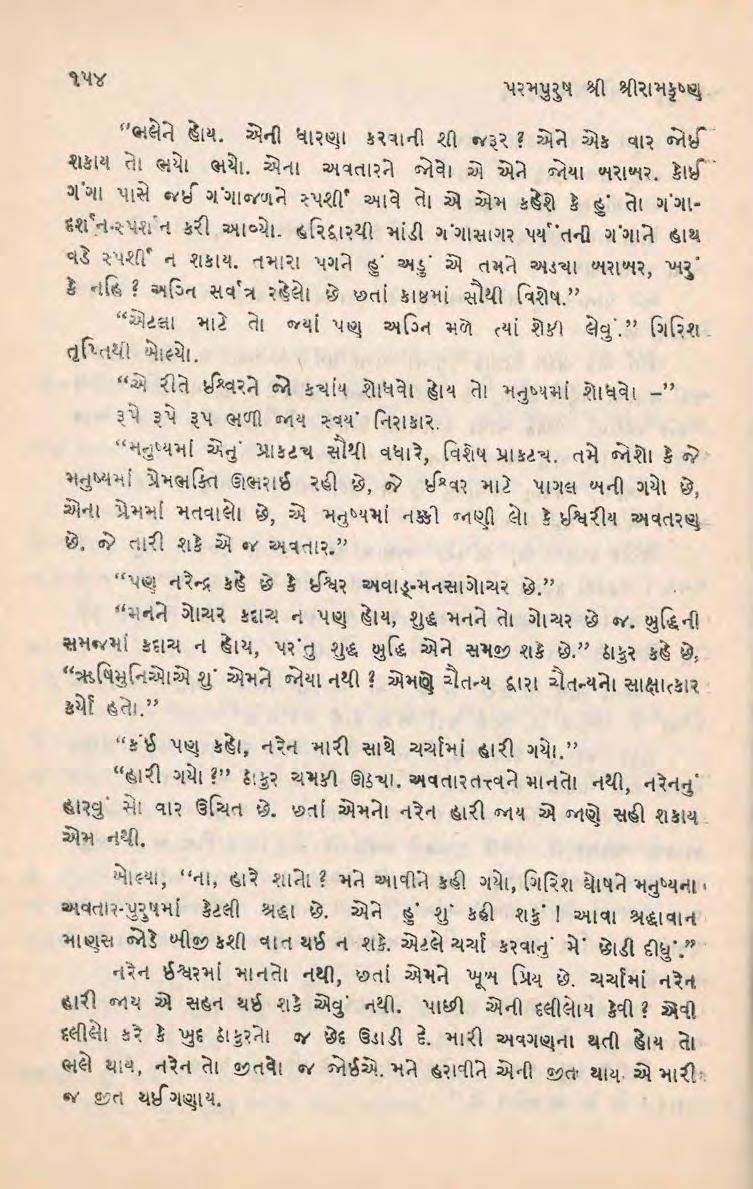 ૧૫૪
પરમપુરુષ શ્રી શ્રીરામકૃષ્ણ
“ભલેને હોય. એની ધારણા કરવાની શી જરૂર ? એને એક વાર જોઈ
શકાય તો ભયો ભયો. એના અવતારને જોવો એ એને જોયા બરાબર. કોઈ
ગંગા પાસે જઈ ગંગાજળને સ્પર્શી આવે તો એ એમ કહેશે કે હું તો ગંગા-
દર્શન-સ્પર્શન કરી આવ્યો. હરિદ્વારથી માંડી ગંગાસાગર પર્યંતની ગંગાને હાથ
વડે સ્પર્શી ન શકાય. તમારા પગને હું અડું એ તમને અડચા બરાબર, ખરું
કે નહિ ? અગ્નિ સર્વત્ર રહેલો છે છતાં કાષ્ઠમાં સૌથી વિશેષ.”
“એટલા માટે તો જ્યાં પણ અગ્નિ મળે ત્યાં શેકી લેવું.” ગિરિશ
તૃપ્તિથી બોલ્યો.
“એ રીતે ઈશ્વરને જો કચાંય શોધવો હોય તો મનુષ્યમાં શોધવો –”
રૂપે રૂપે રૂપ ભળી જાય સ્વયં નિરાકાર.
“મનુષ્યમાં એનું પ્રાકટચ સૌથી વધારે, વિશેષ પ્રાકટચ. તમે જોશો કે જે
મનુષ્યમાં પ્રેમભક્તિ ઊભરાઈ રહી છે, જે ઈશ્વર માટે પાગલ બની ગયો છે,
એના પ્રેમમાં મતવાલો છે, એ મનુષ્યમાં નક્કી જાણી લો કે ઈશ્વરીય અવતરણ
છે. જે તારી શકે એ જ અવતાર.”
“પણ નરેન્દ્ર કહે છે કે ઈશ્વર અવાઙ્-મનસાગોચર છે.”
“મનને ગોચર કદાચ ન પણ હોય, શુદ્ધ મનને તો ગોચર છે જ. બુદ્ધિની
સમજમાં કદાચ ન હોય, પરંતુ શુદ્ધ બુદ્ધિ એને સમજી શકે છે.” ઠાકુર કહે છે,
“ઋષિમુનિઓએ શું એમને જોયા નથી ? એમણે ચૈતન્ય દ્વારા ચૈતન્યનો સાક્ષાત્કાર
કર્યો હતો.”
“કંઈ પણ કહો, નરેન મારી સાથે ચર્ચામાં હારી ગયો.”
“હારી ગયો ?” ઠાકુર ચમકી ઊઠચા. અવતારતત્ત્વને માનતો નથી, નરેનનું
હારવું સો વાર ઉચિત છે. છતાં એમનો નરેન હારી જાય એ જાણે સહી શકાય
એમ નથી.
બોલ્યા, “ના, હારે શાનો ? મને આવીને કહી ગયો, ગિરિશ ઘોષને મનુષ્યના
અવતાર-પુરુષમાં કેટલી શ્રદ્ધા છે. એને હું શું કહી શકું ! આવા શ્રદ્ધાવાન
માણસ જોડે બીજી કશી વાત થઈ ન શકે. એટલે ચર્ચા કરવાનું મેં છોડી દીધું.”
નરેન ઈશ્વરમાં માનતો નથી, છતાં એમને ખૂબ પ્રિય છે. ચર્ચામાં નરેન
હારી જાય એ સહન થઈ શકે એવું નથી. પાછી એની દલીલોય કેવી ? એવી
દલીલો કરે કે ખુદ ઠાકુરનો જ છેદ ઉડાડી દે. મારી અવગણના થતી હોય તો
ભલે થાય, નરેન તો જીતવો જ જોઈએ. મને હરાવીને એની જીત થાય એ મારી
જ જીત થઈ ગણાય.